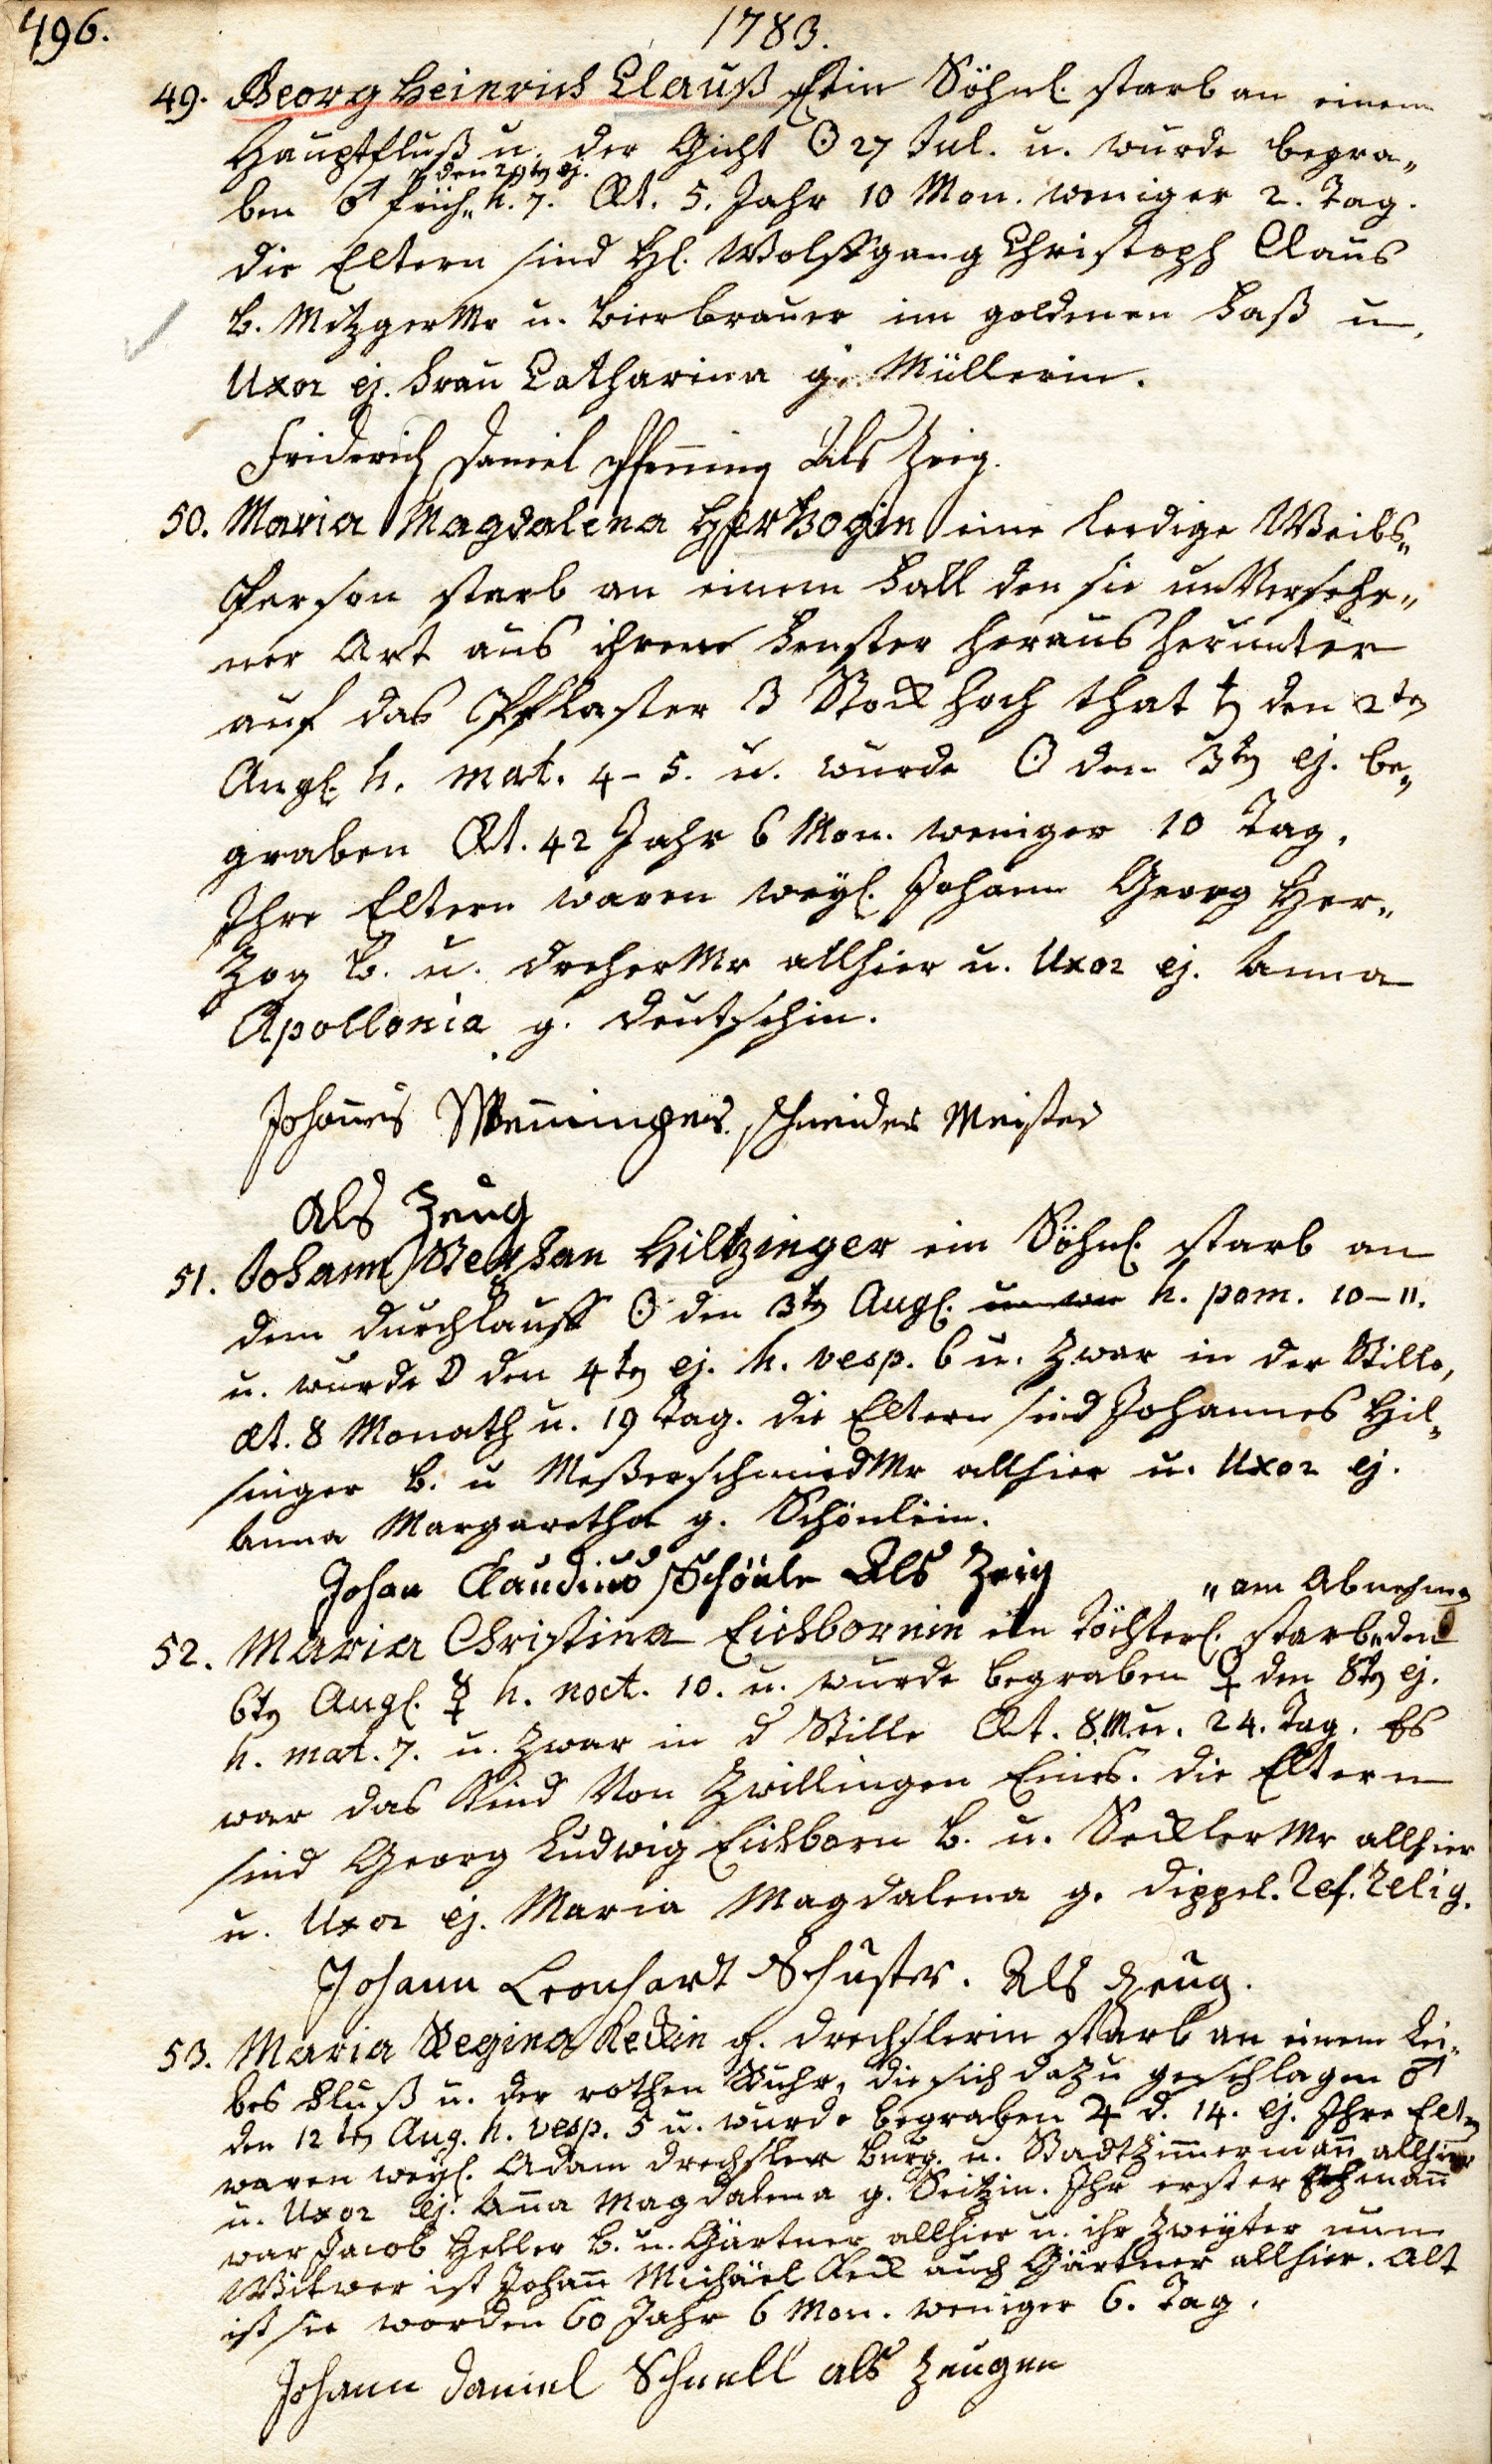 496.
1783.
49. Georg Heinrich Clauß Ein Söhnl. starb an einem
Hauptfluß u. der Gicht ☉ 27 Jul. u. wurde begra„
den 29tn ej.
ben ♂ früh„ h. 7. Æt. 5. Jahr 10 Mon. weniger 2. Tag.
die Eltern sind H. Wolffgang Christoph Clauß
b. MetzgerMr u. Bierbrauer im goldenen Faß u.
Uxor ej. Frau Catharina g. Müllerin.
Friderich Daniel Pfenning Als Zeig.
50. Maria Magdalena Hertzogin eine leedige Weibs„
Person starb an einem Fall den sie unversehe„
ner Art aus ihrem Fenster heraus herunter
auf das Pflaster 3 Stock hoch that ♄ den 2tn
Augl. h. mat. 4-5. u. wurde ☉ den 3tn ej. be„
graben Æt. 42 Jahr 6 Mon. weniger 10 Tag.
Ihre Eltern waren weyl. Johann Georg Her„
zog B. u. DreherMr allhier u. Uxor ej. Anna
Apollonia g. Deutschin.
Johannes Wenninger Schneider Meister
Als Zeug
51. Johann Stephan Hiltzinger ein Söhnl. starb an
dem Durchlauff ☉ den 3tn Augl. h. pom. 10-11.
u. wurde ☽ den 4tn ej. h. vesp. 6 u. zwar in der Stille,
æt. 8 Monath u. 19 Tag. die Eltern sind Johannes Hil„
singer B. u MeßerschmiedMr allhier u. Uxor ej.
Anna Margaretha g. Schönlein.
Johan Claudius Schöule Als Zeig
„am Abnehmen
52. Maria Christina Eichbornin ein Töchterl. starb„ den
6tn Augl. ☿ h. noct. 10. u. wurde begraben ♀ den 8tn ej.
h. mat. 7. u. zwar in d Stille Æt. 8. M. u. 24. Tag. Es
war das Kind Von Zwillingen Eines. die Eltern
sind Georg Ludwig Eichborn B. u. SecklerMr allhier
u. Uxor ej. Maria Magdalena g. Dippel. Ref. Relig.
Johann Leonhart Schuster. Als Zeug.
53. Maria Regina Keckin g. Drechslerin starb an einem Lei„
bes Fluß u. der rothen Ruhr, die sich dazu geschlagen ♂
den 12tn Aug. h. vesp. 5 u. wurde begraben ♃ d. 14. ej. Ihre Eltn
waren weyl. Adam Drechsler Burg. u. Stadtzim̄ermañ allhier
u. Uxor ej. Aña Magdalena g. Seitzin. Ihr erster Ehmañ
war Jacob Heller B. u. Gärtner allhier u. ihr zweyter nun
Witwer ist Johañ Michäel Keck auch Gärtner allhier. Alt
ist sie worden 60 Jahr 6 Mon. weniger 6. Tag.
Johann Daniel Schnell als Zeugen